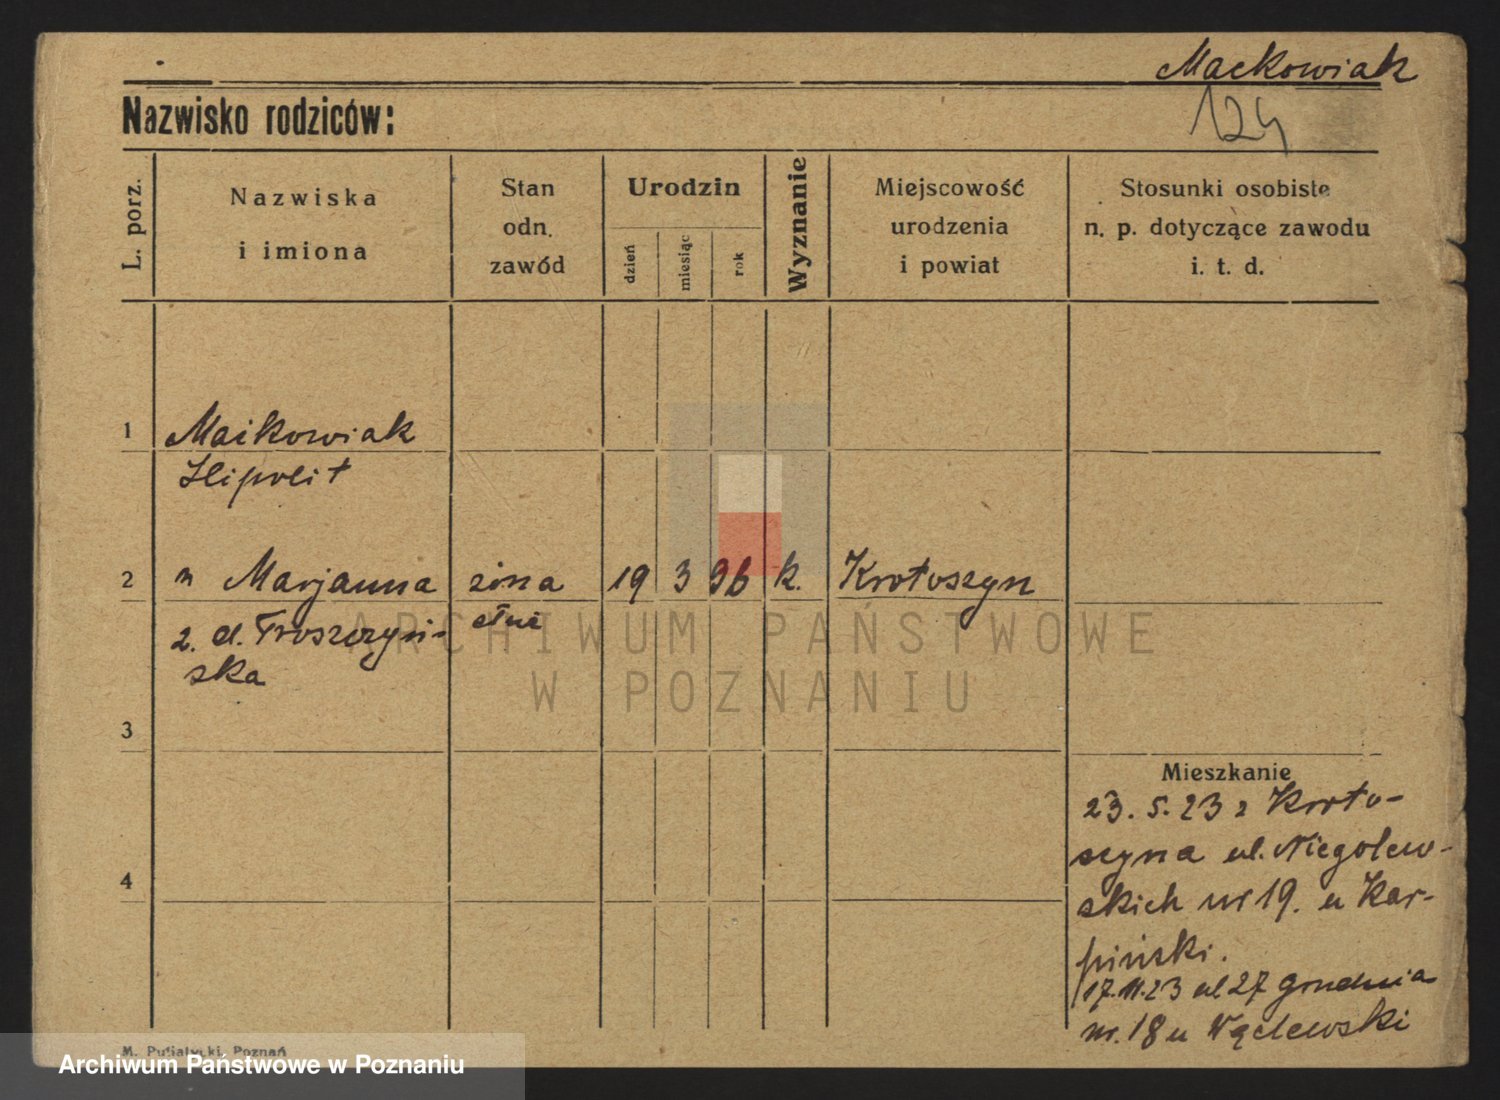 Maćkowiak
Nazwisko rodziców:
124
L. porz.
Nazwiska
i imiona
Stan
odn.
zawód
Urodzin
dzień
miesiąc
rok
Wyznanie
Miejscowość
urodzenia
i powiat
Stosunki osobiste
n. p. dotyczące zawodu
i. t. d.
1
Maćkowiak
Hipolit
2
n Marjanna
żona
19 3 96 k. Krotoszyn
z. d. Troszczyń-
ska
ARCHIWUM PAŃSTWOWE
W POZNANIU
3
Mieszkanie
23. 5. 23 z Kroto-
szyna ul. Niegolew-
skich nr 19. u Kar-
piński.
17.11.23 ul 27 grudnia
nr. 18 u Wąclewski
4
M. Putiatycki, Poznań
Archiwum Państwowe w Poznaniu